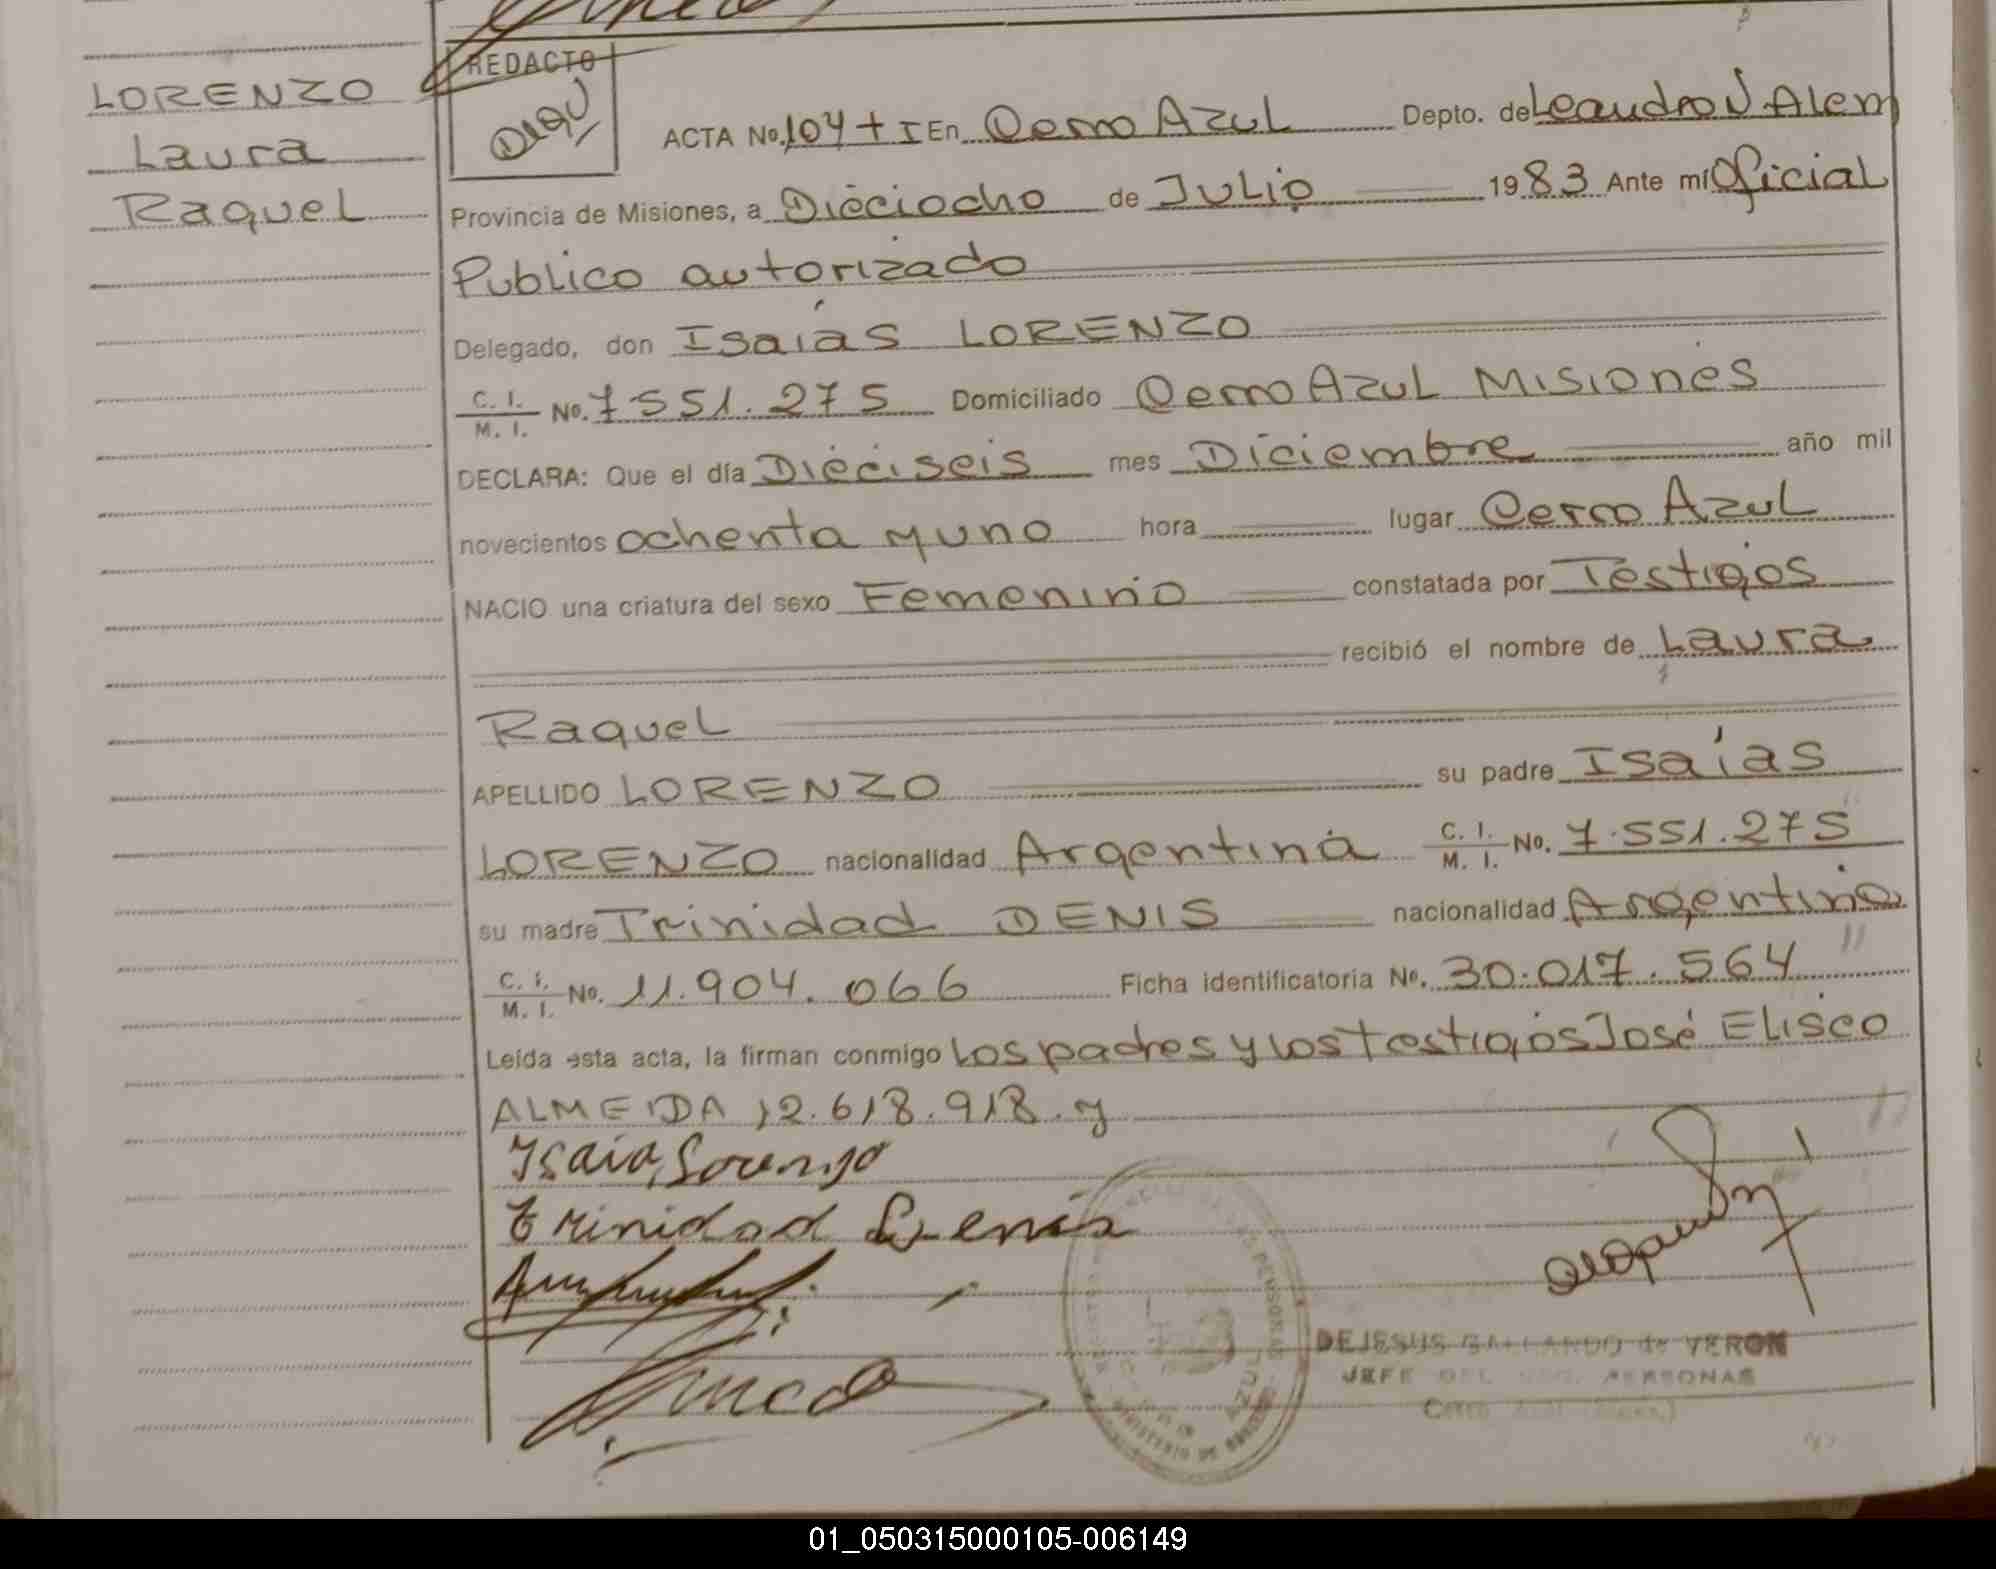 LORENZO
Laura
Raquel
REDACTO
ACTA No. 104 + I En Cerro Azul Depto. de Leandro N Alem
Provincia de Misiones, a Dieciocho de Julio 1983 Ante mi Oficial
Publico autorizado
Delegado, don Isaías LORENZO
C. I. / M. I. No. 7.551.275 Domiciliado Cerro Azul Misiones
DECLARA: Que el día Dieciseis mes Diciembre año mil
novecientos ochenta y uno hora lugar Cerro Azul
NACIO una criatura del sexo Femenino constatada por Testigos
recibió el nombre de Laura
Raquel
APELLIDO LORENZO su padre Isaías
LORENZO nacionalidad Argentina C. I. / M. I. No. 7.551.275
su madre Trinidad DENIS nacionalidad Argentina
C. I. / M. I. No. 11.904.066 Ficha identificatoria No. 30.017.564
Leída esta acta, la firman conmigo Los padres y los Testigos José Eliseo
ALMEIDA 12.618.918. y
Isaias Lorenzo
Trinidad Denis
DEJESUS GALLARDO de VERON
JEFE DEL PERSONAS
Cerro Azul
AZUL
01_050315000105-006149